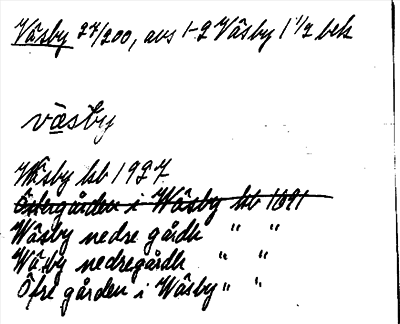 Väsby 27/200, avs 1-2 Väsby 1 1/2 bek
väsby
Wäsby hb 1927
Östergården i Wäsby hb 1691
Wäsby nedre gårdh " "
Wäsby nedregårdh " "
Öfre gården i Wäsby " "